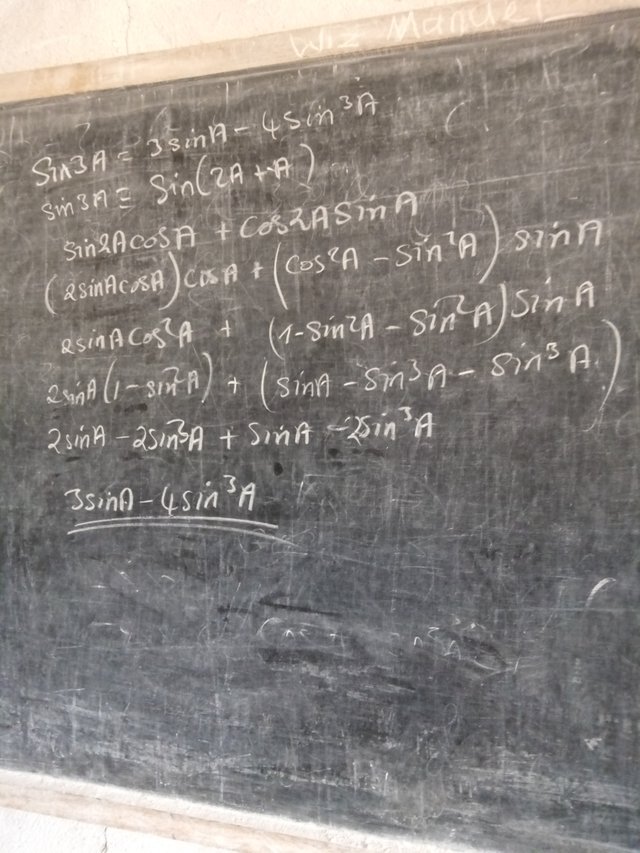 Wiz Manuel
Sin3A = 3sinA - 4sin³A
Sin3A ≡ Sin(2A + A)
sin2AcosA + Cos2ASinA
(2sinAcosA)CosA + (Cos²A - Sin²A) sinA
2sinACos²A + (1-Sin²A - Sin²A)SinA
2sinA(1-sin²A) + (SinA - Sin³A - Sin³A)
2sinA - 2sin³A + SinA - 2Sin³A
3sinA - 4sin³A